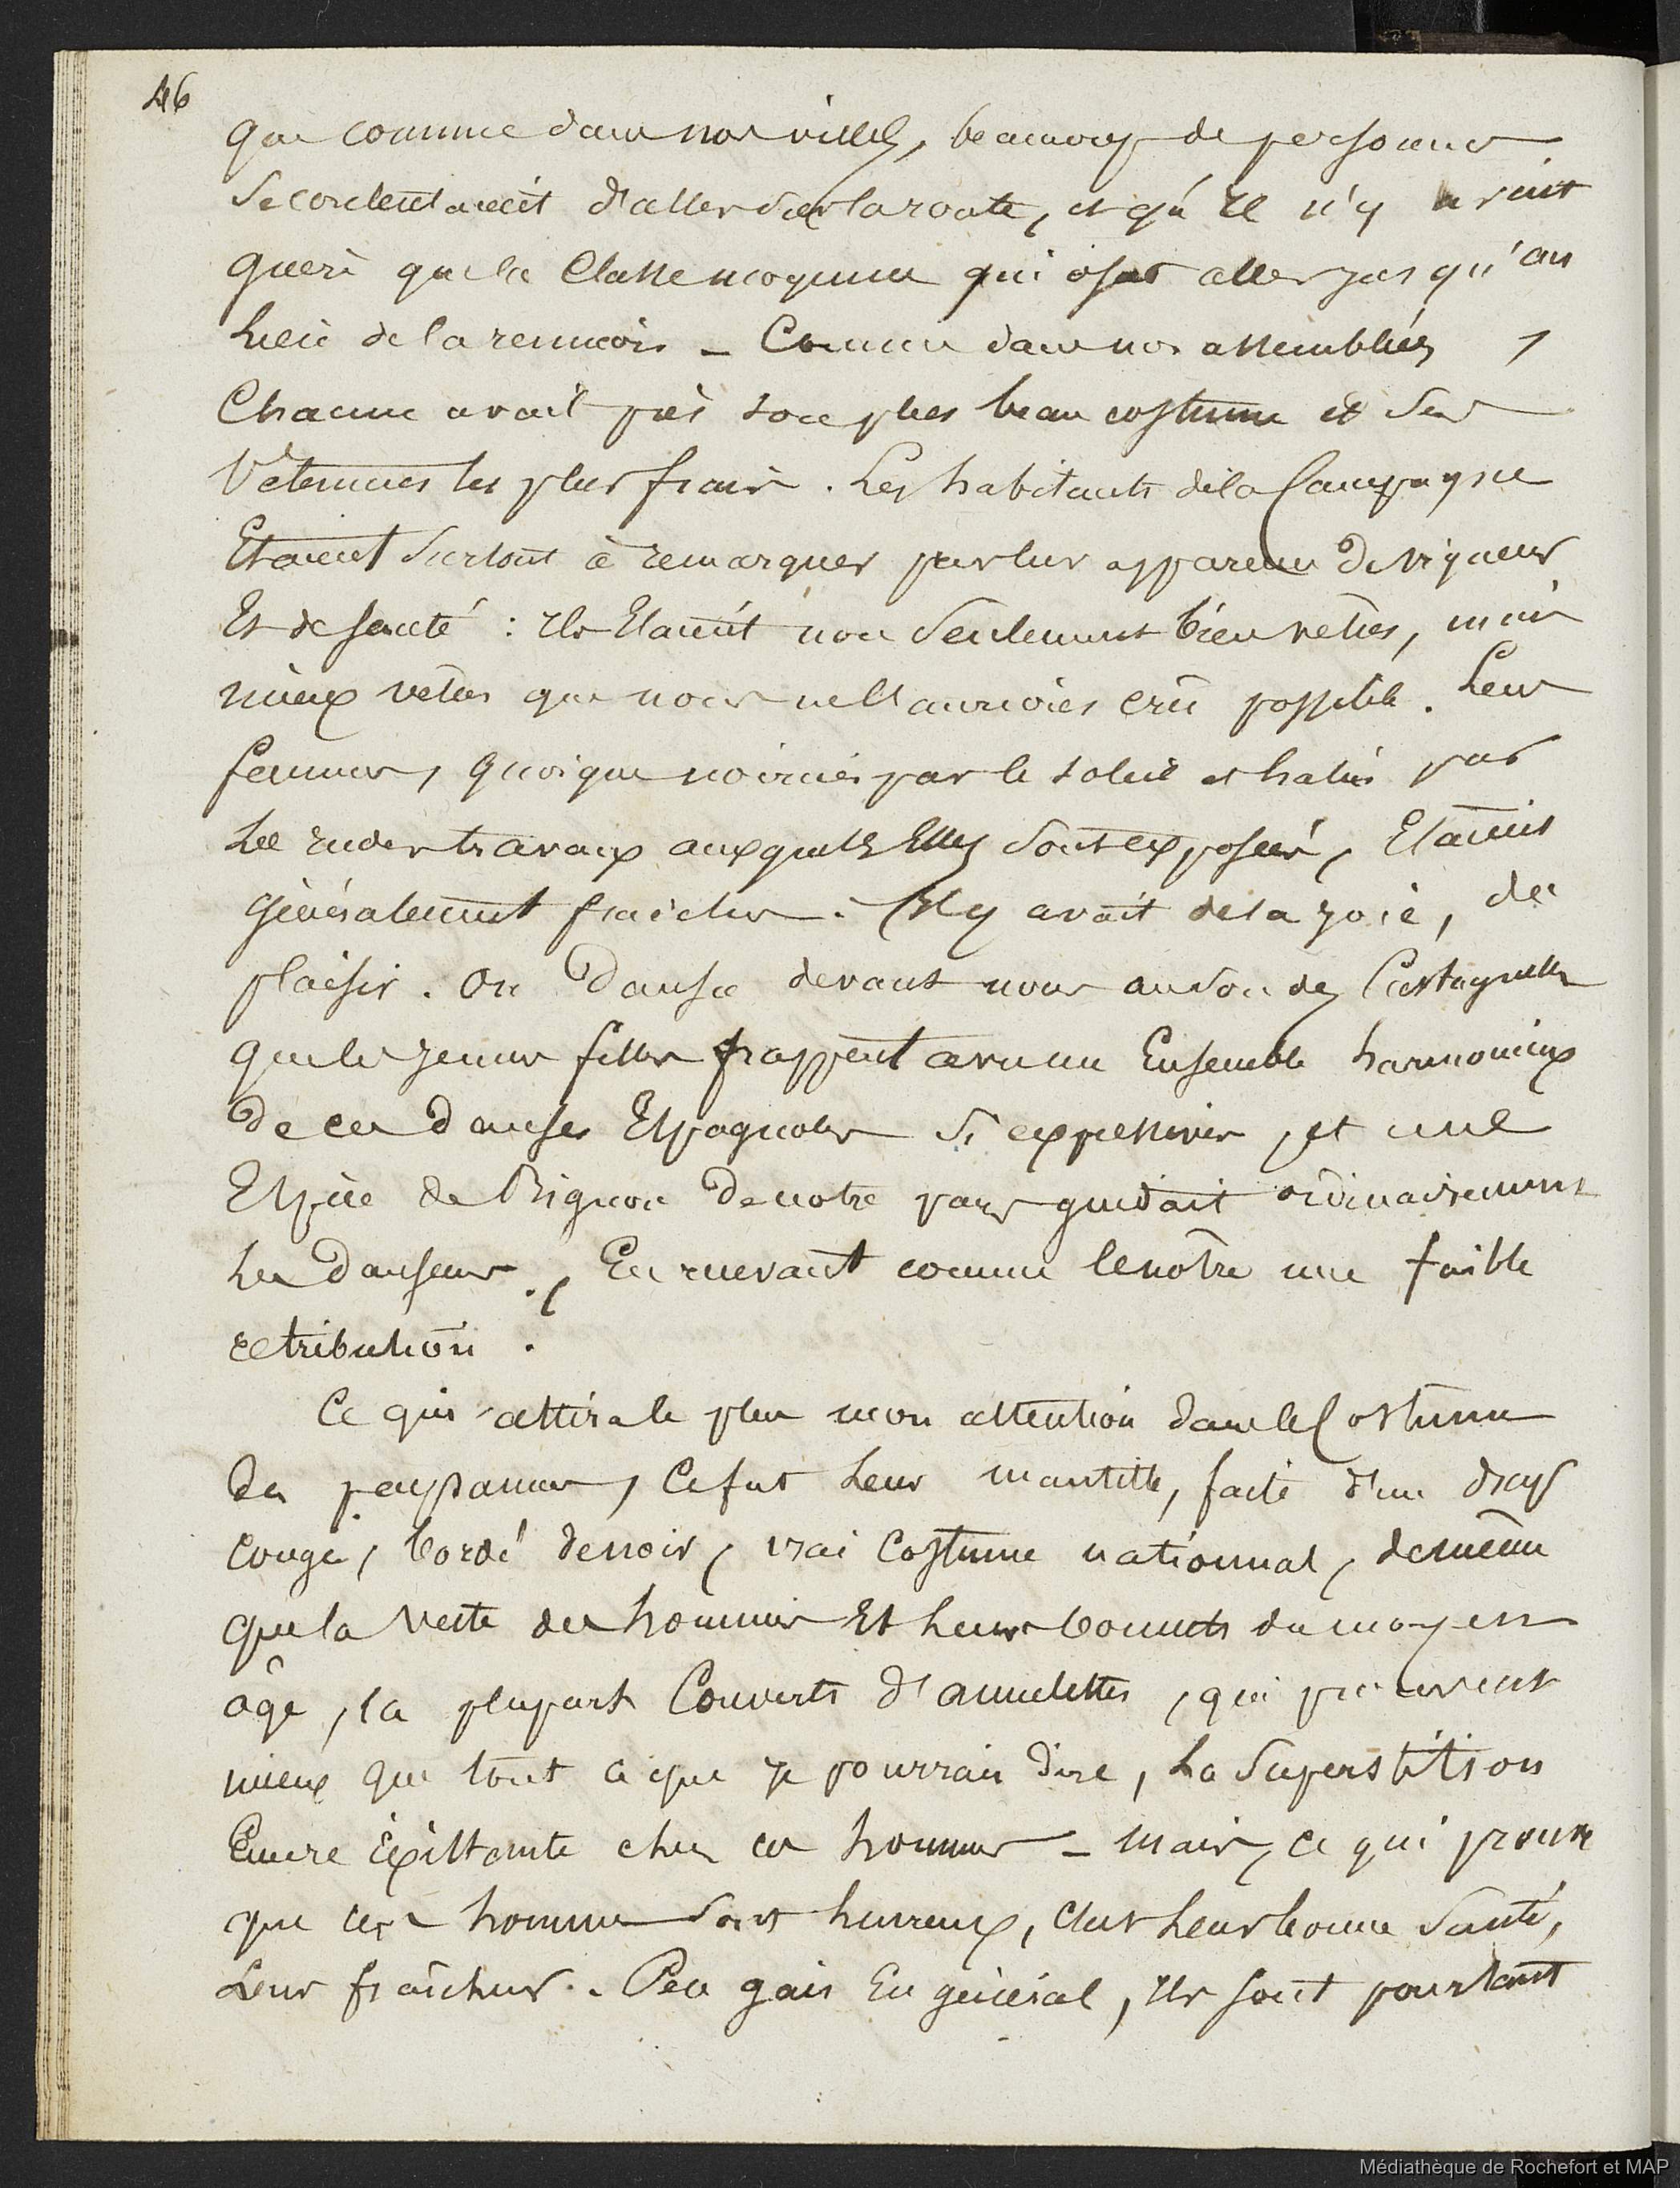 46
que comme dans nos villes, beaucoup de personnes
se contentaient d'aller sur la route, et qu'il n'y avait
guère que la Classe moyenne qui osat aller jusqu'au
Lieu de la reunion _ Comme dans nos assemblées,
Chacun avait pris son plus beau costume et ses
Vêtemens les plus frais. Les habitants de la Campagne
Etaient surtout à remarquer par leur apparence de vigueur
Et de santé : Ils Etaient non seulement bien vêtus, mais
mieux vêtus que nous ne l'aurions crû possible. Leurs
femmes, quoique noircies par le soleil et halées par
Les rudes travaux auxquels Elles sont exposées, Etaient
généralement fraîches. Il y avait de la joie, du
plaisir. On dansa devant nous au son des Castagnettes
que les jeunes filles frappent avec un Ensemble harmonieux
De ces danses Espagnoles si expressives, et une
Espèce de Bignou de notre pays guidait ordinairement
Les Danseurs, En recevant comme le nôtre une faible
retribution.
Ce qui attira le plus mon attention dans le Costume
des paysannes, Ce fut Leur mantille, faite d'un drap
rouge, bordé de noir, vrai Costume nationnal, de même
que la veste des hommes Et Leurs bonnets du moyen
âge, la plupart Couverts d'amulettes, qui prouvent
mieux que tout ce que je pourrais dire, La Superstition
Encore Existante chez ces hommes _ mais, ce qui prouve
que ces hommes sont heureux, c'est Leur bonne Santé,
Leur fraîcheur. Peu gais En général, Ils sont pourtant
Médiathèque de Rochefort et MAP